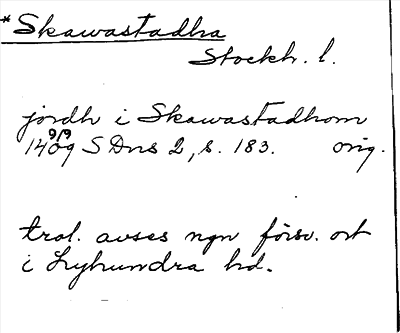 *Skawastadha
Stockh. l.
jordh i Skawastadhom
9/9
1409 SDns 2, s. 183. orig.
trol. avses ngn försv. ort
i Lyhundra hd.